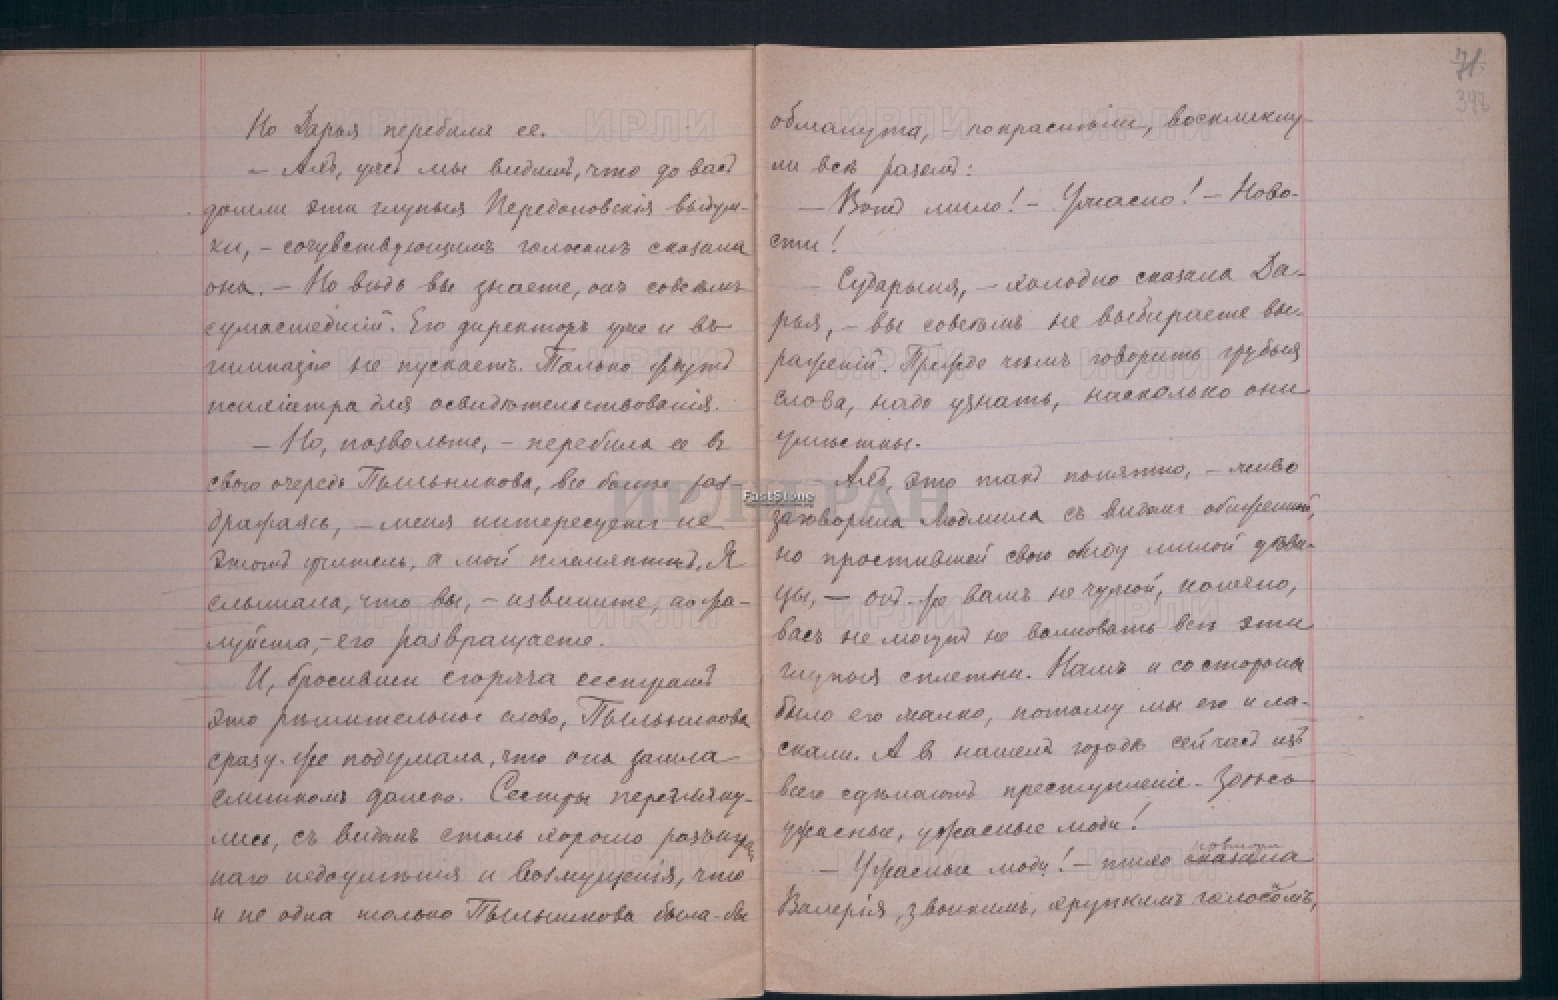 Но Дарья перебила ее.
— Ахъ, ужъ мы видимъ, что до васъ
дошли эти глупыя Передоновскія выдум-
ки, – сочувствующимъ голосомъ сказала
она. – Но вѣдь вы знаете, онъ совсѣмъ
сумасшедшій. Его директоръ уже и въ
гимназію не пускаетъ. Только ждутъ
психіатра для освидѣтельствованія.
— Но, позвольте, – перебила ее въ
свою очередь Пыльникова, все болѣе раз-
дражаясь, – меня интересуетъ не
этотъ учитель, а мой племянникъ. Я
слышала, что вы, – извините, пожа-
луйста, – его развращаете.
И, бросивши сгоряча сестрамъ
это рѣшительное слово, Пыльникова
сразу-же подумала, что она зашла
слишкомъ далеко. Сестры перегляну-
лись, съ видомъ столь хорошо разыгран-
наго недоумѣнія и возмущенія, что
и не одна только Пыльникова была-бы
71.
398
обманута, – покраснѣли, воскликну-
ли всѣ разомъ:
— Вотъ мило! – Ужасно! – Ново-
сти!
— Сударыня, – холодно сказала Да-
рья, – вы совсѣмъ не выбираете вы-
раженій. Прежде чѣмъ говорить грубыя
слова, надо узнать, насколько они
умѣстны.
Ахъ, это такъ понятно, – живо
заговорила Людмила съ видомъ обиженной,
но простившей свою обиду милой дѣви-
цы, – онъ-же вамъ не чужой, конечно,
васъ не могутъ не волновать всѣ эти
глупыя сплетни. Намъ и со стороны
было его жалко, потому мы его и ла-
скали. А въ нашемъ городѣ сейчасъ изъ
всего сдѣлаютъ преступленіе. Здѣсь
ужасные, ужасные люди!
— Ужасные люди! – тихо сказала
Валерія, звонкимъ, хрупкимъ голосомъ,
ИРЛИ РАН
FastStone